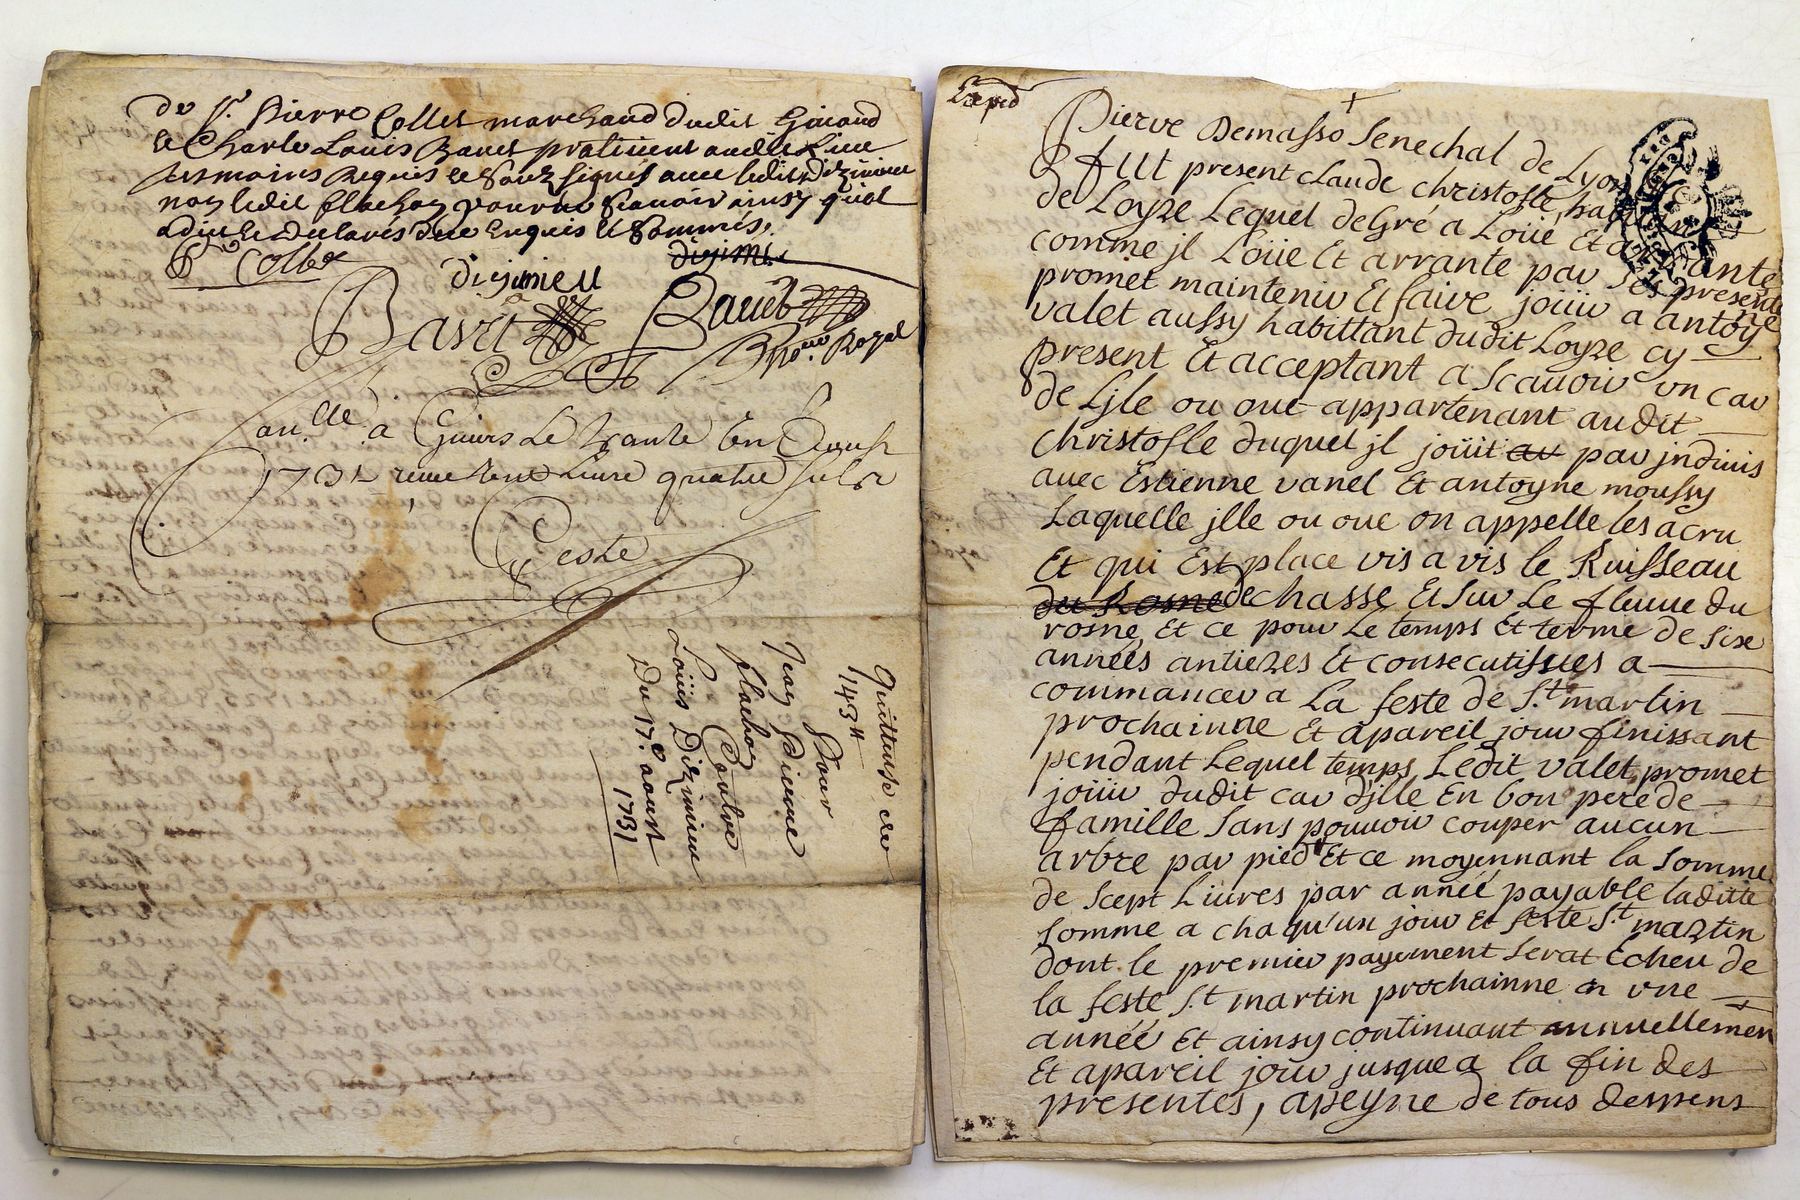 de Sr. Pierre Collet marchand dudit
et Charle Louis Bavet praticien audit Lieu
tesmoins Requis et soubz signés avec ledit dizimieu
non ledit flachon pour ne scauoir ainsy quil
a dit et declaré de ce Enquis et sommés.
Collet
digimieu
digimieu
Bavet
Bavet
Royal
a Le trante un aoust
1731 livre quatre sols
Teste
Quittance de
143 ll
Pour
Jean Pierre
flachon
Contre
Loüis Dizimieu
Du 17e. aoust
1731
Pierre Demasso Senechal de Lyon
fut present claude christofle, hab
de Loyze Lequel de Gré a Loüé Et a
comme jl Loüe Et arrante par Ses presente
promet maintenir Et faire joüir a antoyne
valet aussy habittant dudit Loyze cy
present Et acceptant a Scauoir un car
de Ljle ou oue appartenant audit
christofle duquel jl joüit au par jndivis
avec Estienne vanel Et antoyne moussy
Laquelle jlle ou oue on appelle les acru
Et qui Est place vis a vis le Ruisseau
du Rosne de chasse Et Sur Le fleuue du
rosne, Et ce pour Le temps Et terme de Sixe
années antiezes Et consecutissues a
commancer a La feste de S.t martin
prochainne Et apareil jour finissant
pendant Lequel temps Ledit valet promet
joüir dudit car djlle En bon pere de
famille Sans pouuoir couper aucun
arbre par pied Et ce moyennant la Somme
de Scept Liures par année payable laditte
Somme a chaqu'un jour Et feste S.t maztin
dont le premier payement Serat Echeu de
la feste S.t martin prochainne en une
année Et ainsy continuant annuellemen
Et apareil jour jusque a la fin des
presentes, apeyne de tous despens